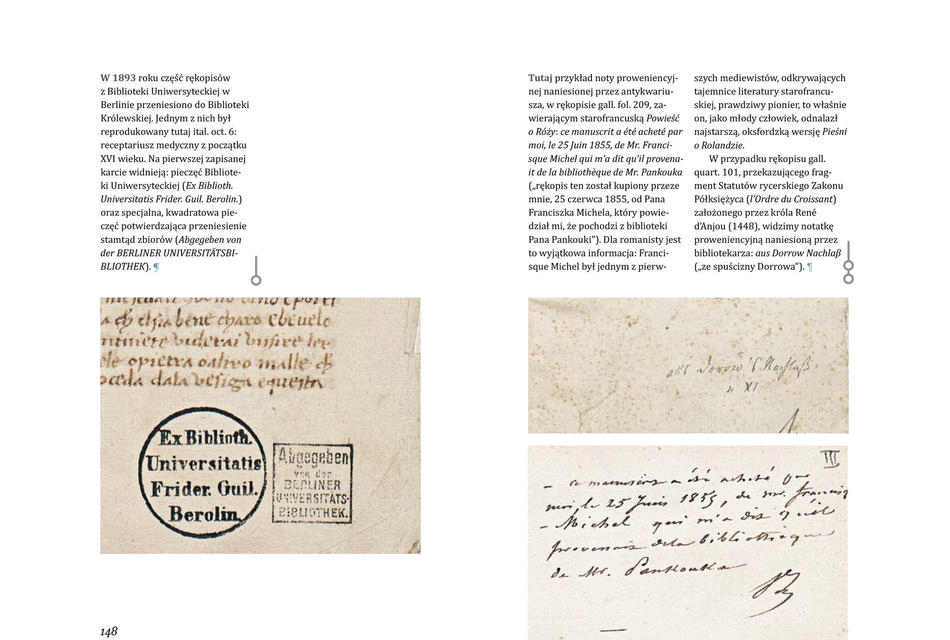 W 1893 roku część rękopisów
z Biblioteki Uniwersyteckiej w
Berlinie przeniesiono do Biblioteki
Królewskiej. Jednym z nich był
reprodukowany tutaj ital. oct. 6:
receptariusz medyczny z początku
XVI wieku. Na pierwszej zapisanej
karcie widnieją: pieczęć Bibliote-
ki Uniwersyteckiej (Ex Biblioth.
Universitatis Frider. Guil. Berolin.)
oraz specjalna, kwadratowa pie-
częć potwierdzająca przeniesienie
stamtąd zbiorów (Abgegeben von
der BERLINER UNIVERSITÄTSBI-
BLIOTHEK). ¶
Ex Biblioth.
Universitatis
Frider. Guil.
Berolin.
Abgegeben
von der
BERLINER
UNIVERSITÄTS-
BIBLIOTHEK.
148
Tutaj przykład noty proweniencyj-
nej naniesionej przez antykwariu-
sza, w rękopisie gall. fol. 209, za-
wierającym starofrancuską Powieść
o Róży: ce manuscrit a été acheté par
moi, le 25 Juin 1855, de Mr. Franci-
sque Michel qui m'a dit qu'il provena-
it de la bibliothèque de Mr. Pankouka
(„rękopis ten został kupiony przeze
mnie, 25 czerwca 1855, od Pana
Franciszka Michela, który powie-
dział mi, że pochodzi z biblioteki
Pana Pankouki”). Dla romanisty jest
to wyjątkowa informacja: Franci-
sque Michel był jednym z pierw-
szych mediewistów, odkrywających
tajemnice literatury starofrancu-
skiej, prawdziwy pionier, to właśnie
on, jako młody człowiek, odnalazł
najstarszą, oksfordzką wersję Pieśni
o Rolandzie.
W przypadku rękopisu gall.
quart. 101, przekazującego frag-
ment Statutów rycerskiego Zakonu
Półksiężyca (l'Ordre du Croissant)
założonego przez króla René
d'Anjou (1448), widzimy notatkę
proweniencyjną naniesioną przez
bibliotekarza: aus Dorrow Nachlaß
(„ze spuścizny Dorrowa”). ¶
XI
III
- ce manuscrit a été acheté par
moi, le 25 Juin 1855, de mr. francisq
- Michel qui m'a dit qu'il
provenait de la bibliothèque
de Mr. Pankouka